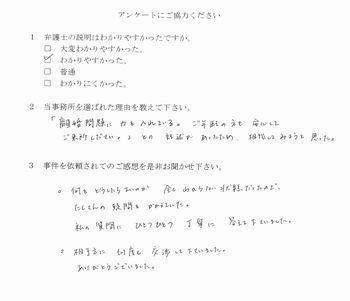 アンケートにご協力ください
1 弁護士の説明はわかりやすかったですか。
□ 大変わかりやすかった。
☑ わかりやすかった。
□ 普通
□ わかりにくかった。
2 当事務所を選ばれた理由を教えて下さい。
「離婚問題に力を入れている。ご年配の方も安心して
ご来所ください。」との記述があったため、相談してみようと思った。
3 事件を依頼されてのご感想を是非お聞かせ下さい。
○ 何をどうしたらよいのか 全くわからない状態だったので、
たくさんの疑問をかかえていた。
私の質問に ひとつひとつ 丁寧に 答えて下さいました。
○ 相手方に 何度も 交渉して下さいました。
ありがとうございました。